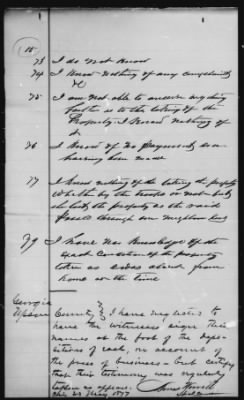 15
73 I do not know
74 I know nothing of any complaints
&c
75 I am not able to answer anything
further as to the taking of the
Property. I know nothing of
it
76 I know of no payments ever
having been made
77 I know nothing of the taking the property
whether by the troops or not but
the property as the raid
passed through our neighborhood
79 I have no knowledge of the
exact condition of the property
taken as I was absent from
home at the time
Georgia
Upson County I have neglected to
have the witnesses sign their
names at the foot of the depo-
sitions of each, on account of
the press of business - but certify
that their testimony was regularly
taken as appears.
this 23 May 1877